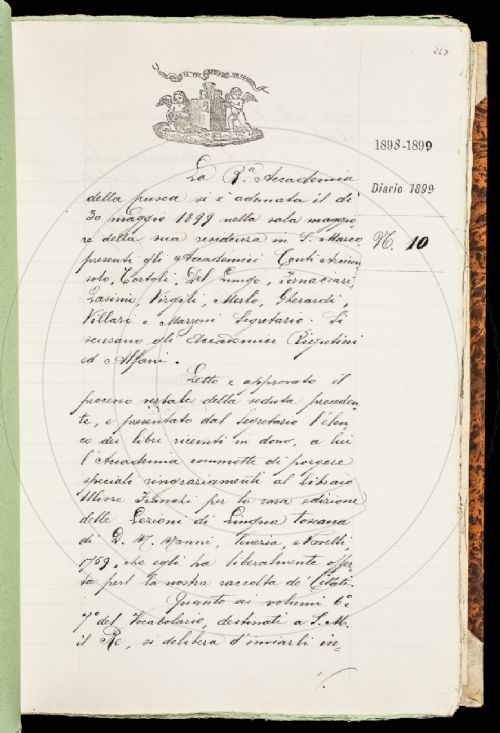 267
1898-1899
Diario 1899
N. 10
La R.a Accademia
della Crusca si è adunata il dì
30 maggio 1899 nella sala maggio
re della sua residenza in S. Marco
presenti gli Accademici Conti Arcicon
solo, Tortoli, Del Lungo, Fornaciari,
Tassini, Virgili, Merlo, Gherardi,
Villari e Mazzoni Segretario. Si
scusano gli Accademici Rigutini
ed Alfani.
Letto e approvato il
processo verbale della seduta preceden
te, è presentato dal Segretario l'elen
co dei libri ricevuti in dono, a lui
l'Accademia commette di porgere
speciali ringraziamenti al libraio
Ulisse Franchi per la rara edizione
delle Lezioni di Lingua toscana
di D. M. Manni, Venezia, Novelli,
1759, che egli ha liberalmente offer
ta per la nostra raccolta de' Citati.
Quanto ai volumi 6° e
7° del Vocabolario, destinati a S. M.
il Re, si delibera d'inviarli in=